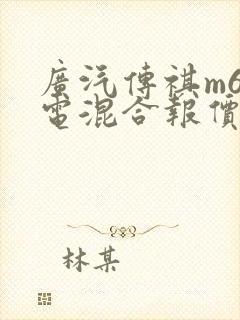 廣汽傳祺m6
電混合報價
林某